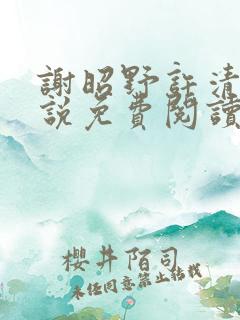 謝昭野許清
說免費閱讀
櫻井陌司
未经同意禁止转载